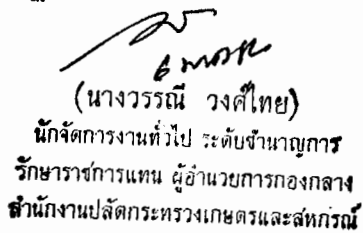 (นางวรรณี วงศ์ไทย)
นักจัดการงานทั่วไป ระดับชำนาญการ
รักษาราชการแทน ผู้อำนวยการกองกลาง
สำนักงานปลัดกระทรวงเกษตรและสหกรณ์